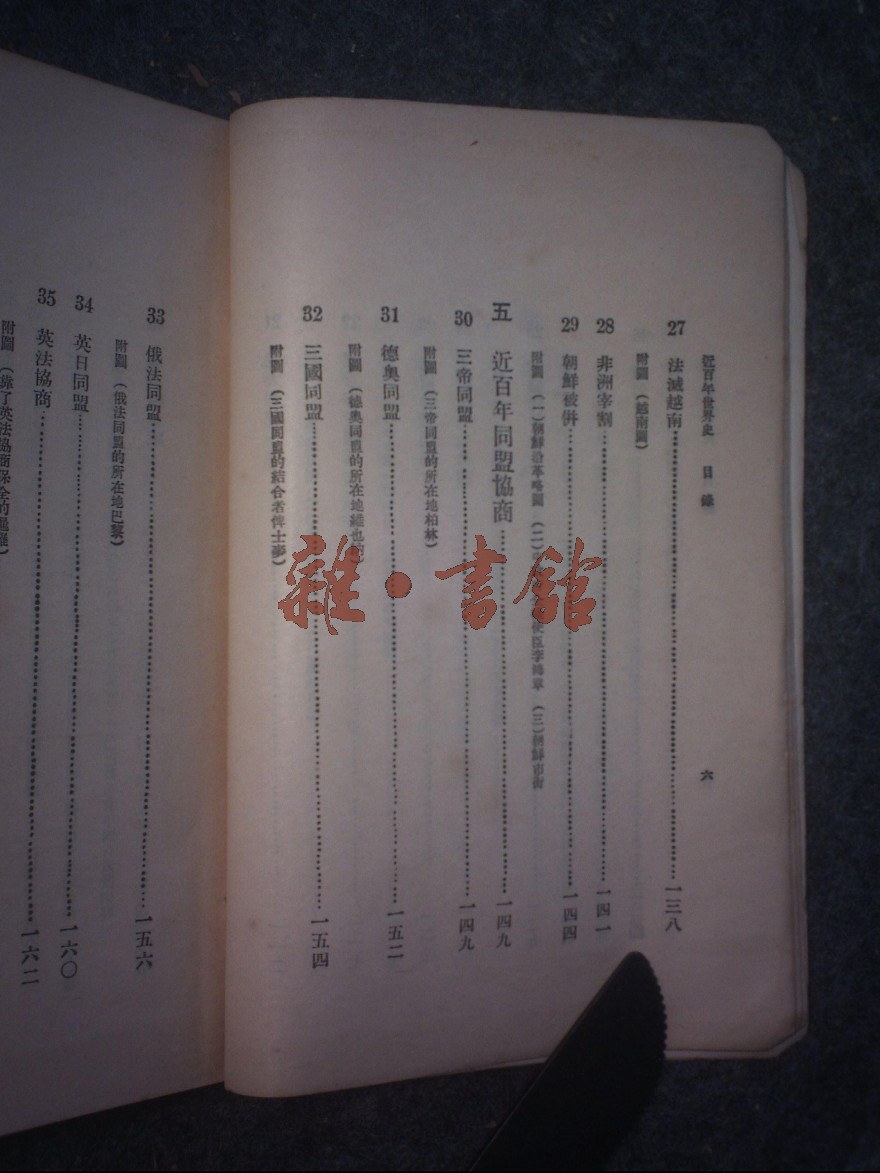 近百年世界史 目錄
六
27 法滅越南 一三八
附圖 (越南圖)
28 非洲宰割 一四一
29 朝鮮被併 一四四
附圖 (一)朝鮮沿革略圖 (二) 使臣李鴻章 (三)朝鮮市街
五 近百年同盟協商 一四九
30 三帝同盟 一四九
附圖 (三帝同盟的所在地柏林)
31 德奧同盟 一五二
附圖 (德奧同盟的所在地維也納)
32 三國同盟 一五四
附圖 (三國同盟的結合者俾士麥)
33 俄法同盟 一五六
附圖 (俄法同盟的所在地巴黎)
34 英日同盟 一六〇
35 英法協商 一六二
附圖 (靠了英法協商保全的暹羅)
雜·書館